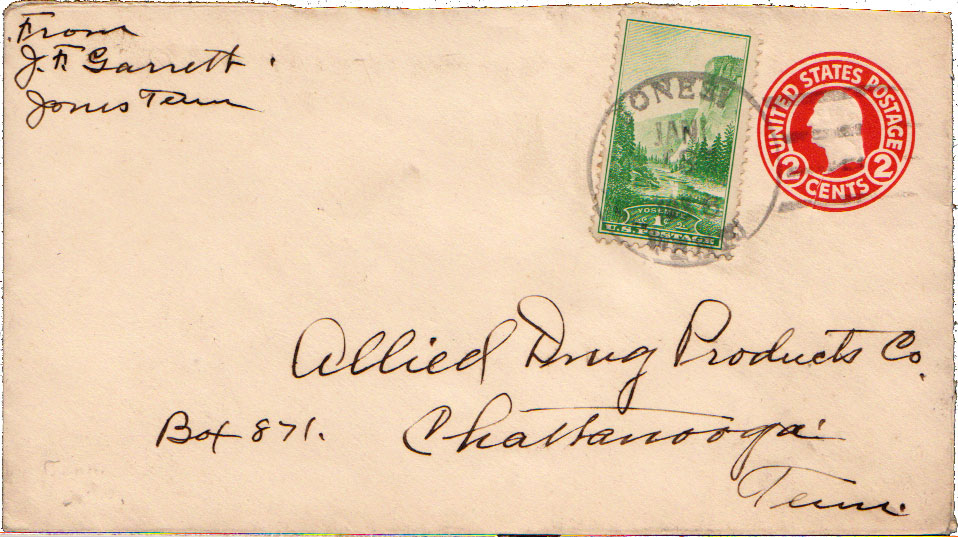 From
J. F. Garrett.
Jones Tenn
JONES
JAN
YOSEMITE
1
U.S. POSTAGE
UNITED STATES POSTAGE
2 2
CENTS
Allied Drug Products Co.
Box 871. Chattanooga
Tenn.